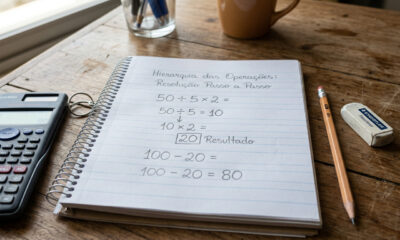 Hierarquia das Operações:
Resolução Passo a Passo
50 ÷ 5 × 2 =
50 ÷ 5 = 10
↓
10 × 2 =
20 Resultado
100 - 20 =
100 - 20 = 80